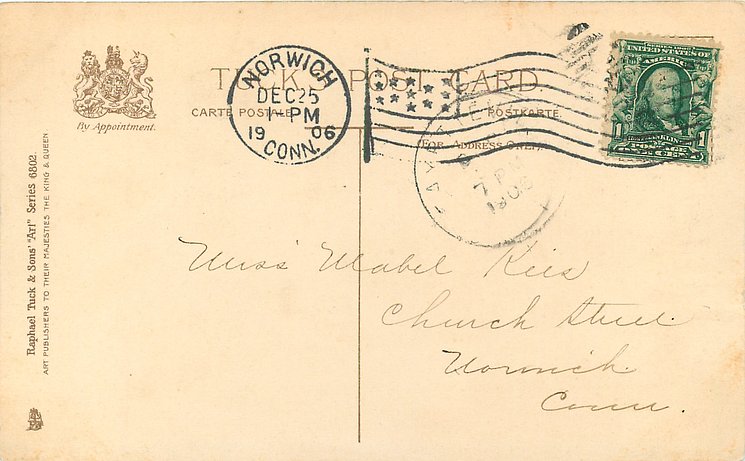 TUCK POST CARD
CARTE POSTALE
POSTKARTE
(FOR ADDRESS ONLY)
By Appointment.
NORWICH
DEC 25
1-PM
19 06
CONN.
7 P
1906
SERIES 1902
UNITED STATES OF
AMERICA
FRANKLIN
POSTAGE
1 ONE CENT 1
Raphael Tuck & Sons' "Art" Series 6802.
ART PUBLISHERS TO THEIR MAJESTIES THE KING & QUEEN.
Miss Mabel Ries
Church Street
Norwich
Conn.